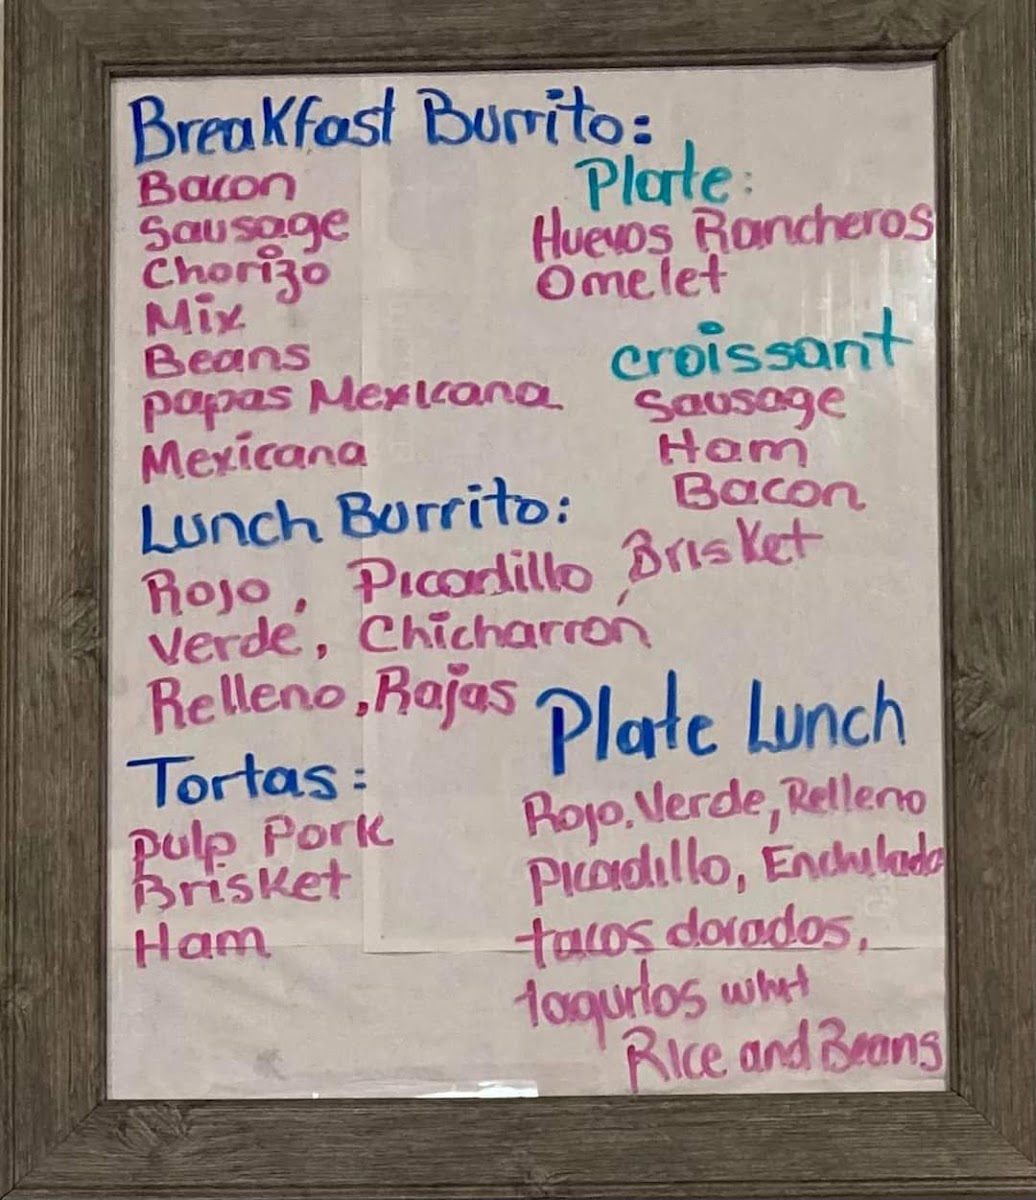 Breakfast Burrito:
Bacon
Sausage
Chorizo
Mix
Beans
papas Mexicana
Mexicana
Plate:
Huevos Rancheros
Omelet
croissant
Sausage
Ham
Bacon
Lunch Burrito:
Rojo, Picadillo, Brisket
Verde, Chicharron
Relleno, Rajas
Tortas:
pulp Pork
Brisket
Ham
Plate Lunch
Rojo. Verde, Relleno
Picadillo, Enchilada
tacos dorados,
Rice and Beans